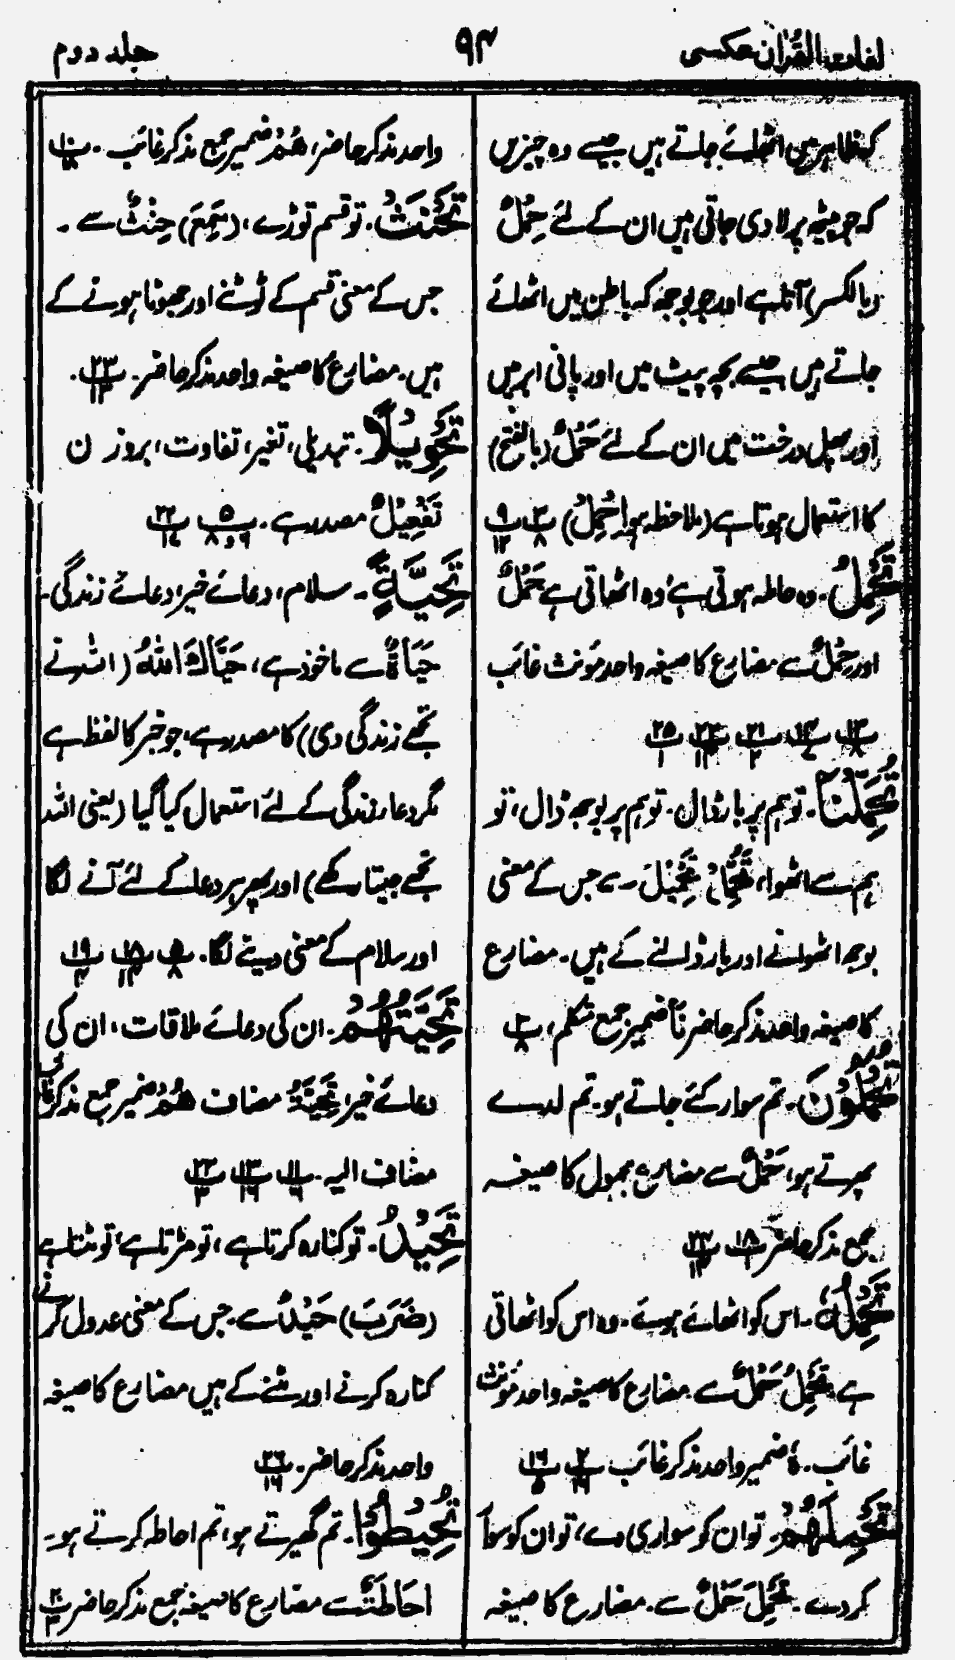 لغات القرآن عکسی
۹۴
جلد دوم
کہ ظاہر میں اٹھائے جاتے ہیں جیسے وہ چیزیں
کہ جو پیٹھ پر لادی جاتی ہیں ان کے لئے حِمْلٌ
(بالکسر) آتا ہے اور جو بوجھ کہ باطن میں اٹھائے
جاتے ہیں جیسے بچہ پیٹ میں اور پانی ابر میں
اور پھل درخت میں ان کے لئے حَمْلٌ (بالفتح)
کا استعمال ہوتا ہے (ملاحظہ ہو اِحْمِلْ)
تَحْمِلُ۔ وہ حاملہ ہوتی ہے، وہ اٹھاتی ہے حَمْلٌ
اور حِمْلٌ سے مضارع کا صیغہ واحد مؤنث غائب
تُحَمِّلْنَا۔ تو ہم پر بار ڈال۔ تو ہم پر بوجھ ڈال، تو
ہم سے اٹھوا، تَحْمِیْلٌ سے جس کے معنی
بوجھ اٹھوانے اور بار ڈالنے کے ہیں۔ مضارع
کا صیغہ واحد مذکر حاضر نَا ضمیر جمع متکلم،
تُحْمَلُوْنَ۔ تم سوار کئے جاتے ہو۔ تم لدے
پھرتے ہو، حَمْلٌ سے مضارع مجہول کا صیغہ
جمع مذکر حاضر
تَحْمِلُهُ۔ اس کو اٹھائے ہوئے۔ وہ اس کو اٹھاتی
ہے، تَحْمِلُ حَمْلٌ سے مضارع کا صیغہ واحد مؤنث
غائب۔ ہٗ ضمیر واحد مذکر غائب
تَحْمِلَهُمْ۔ تو ان کو سواری دے، تو ان کو سوار
کردے۔ تَحْمِلَ حَمْلٌ سے۔ مضارع کا صیغہ
واحد مذکر حاضر، هُمْ ضمیر جمع مذکر غائب۔
تَحْنَثْ۔ تو قسم توڑے، (سَمِعَ) حِنْثٌ سے۔
جس کے معنی قسم کے ٹوٹنے اور جھوٹا ہونے کے
ہیں۔ مضارع کا صیغہ واحد مذکر حاضر۔ ۲۳/۱۳۔
تَحْوِیْلًا۔ تبدیلی، تغیر، تفاوت، بروزن
تَفْعِیْلٌ مصدر ہے۔
تَحِیَّةٌ۔ سلام، دعائے خیر، دعائے زندگی۔
حَیَاةٌ سے ماخوذ ہے، حَیَّاكَ اللّٰهُ (اللہ نے
تجھے زندگی دی) کا مصدر ہے، جو خبر کا لفظ ہے
مگر دعاء زندگی کے لئے استعمال کیا گیا (یعنی اللہ
تجھے جیتا رکھے) اور پھر ہر دعا کے لئے آنے لگا
اور سلام کے معنی دینے لگا۔
تَحِیَّتُهُمْ۔ ان کی دعائے ملاقات، ان کی
دعائے خیر، تَحِیَّةٌ مضاف هُمْ ضمیر جمع مذکر غائب
مضاف الیہ۔
تَحِیْدُ۔ تو کنارہ کرتا ہے، تو مڑتا ہے، تو ہٹتا ہے
(ضَرَبَ) حَیْدٌ سے۔ جس کے معنی عدول کرنے
کنارہ کرنے اور ہٹنے کے ہیں مضارع کا صیغہ
واحد مذکر حاضر۔ ۲۶/۱۶
تُحِیْطُوْا۔ تم گھیرتے ہو، تم احاطہ کرتے ہو۔
اِحَاطَةٌ سے مضارع کا صیغہ جمع مذکر حاضر